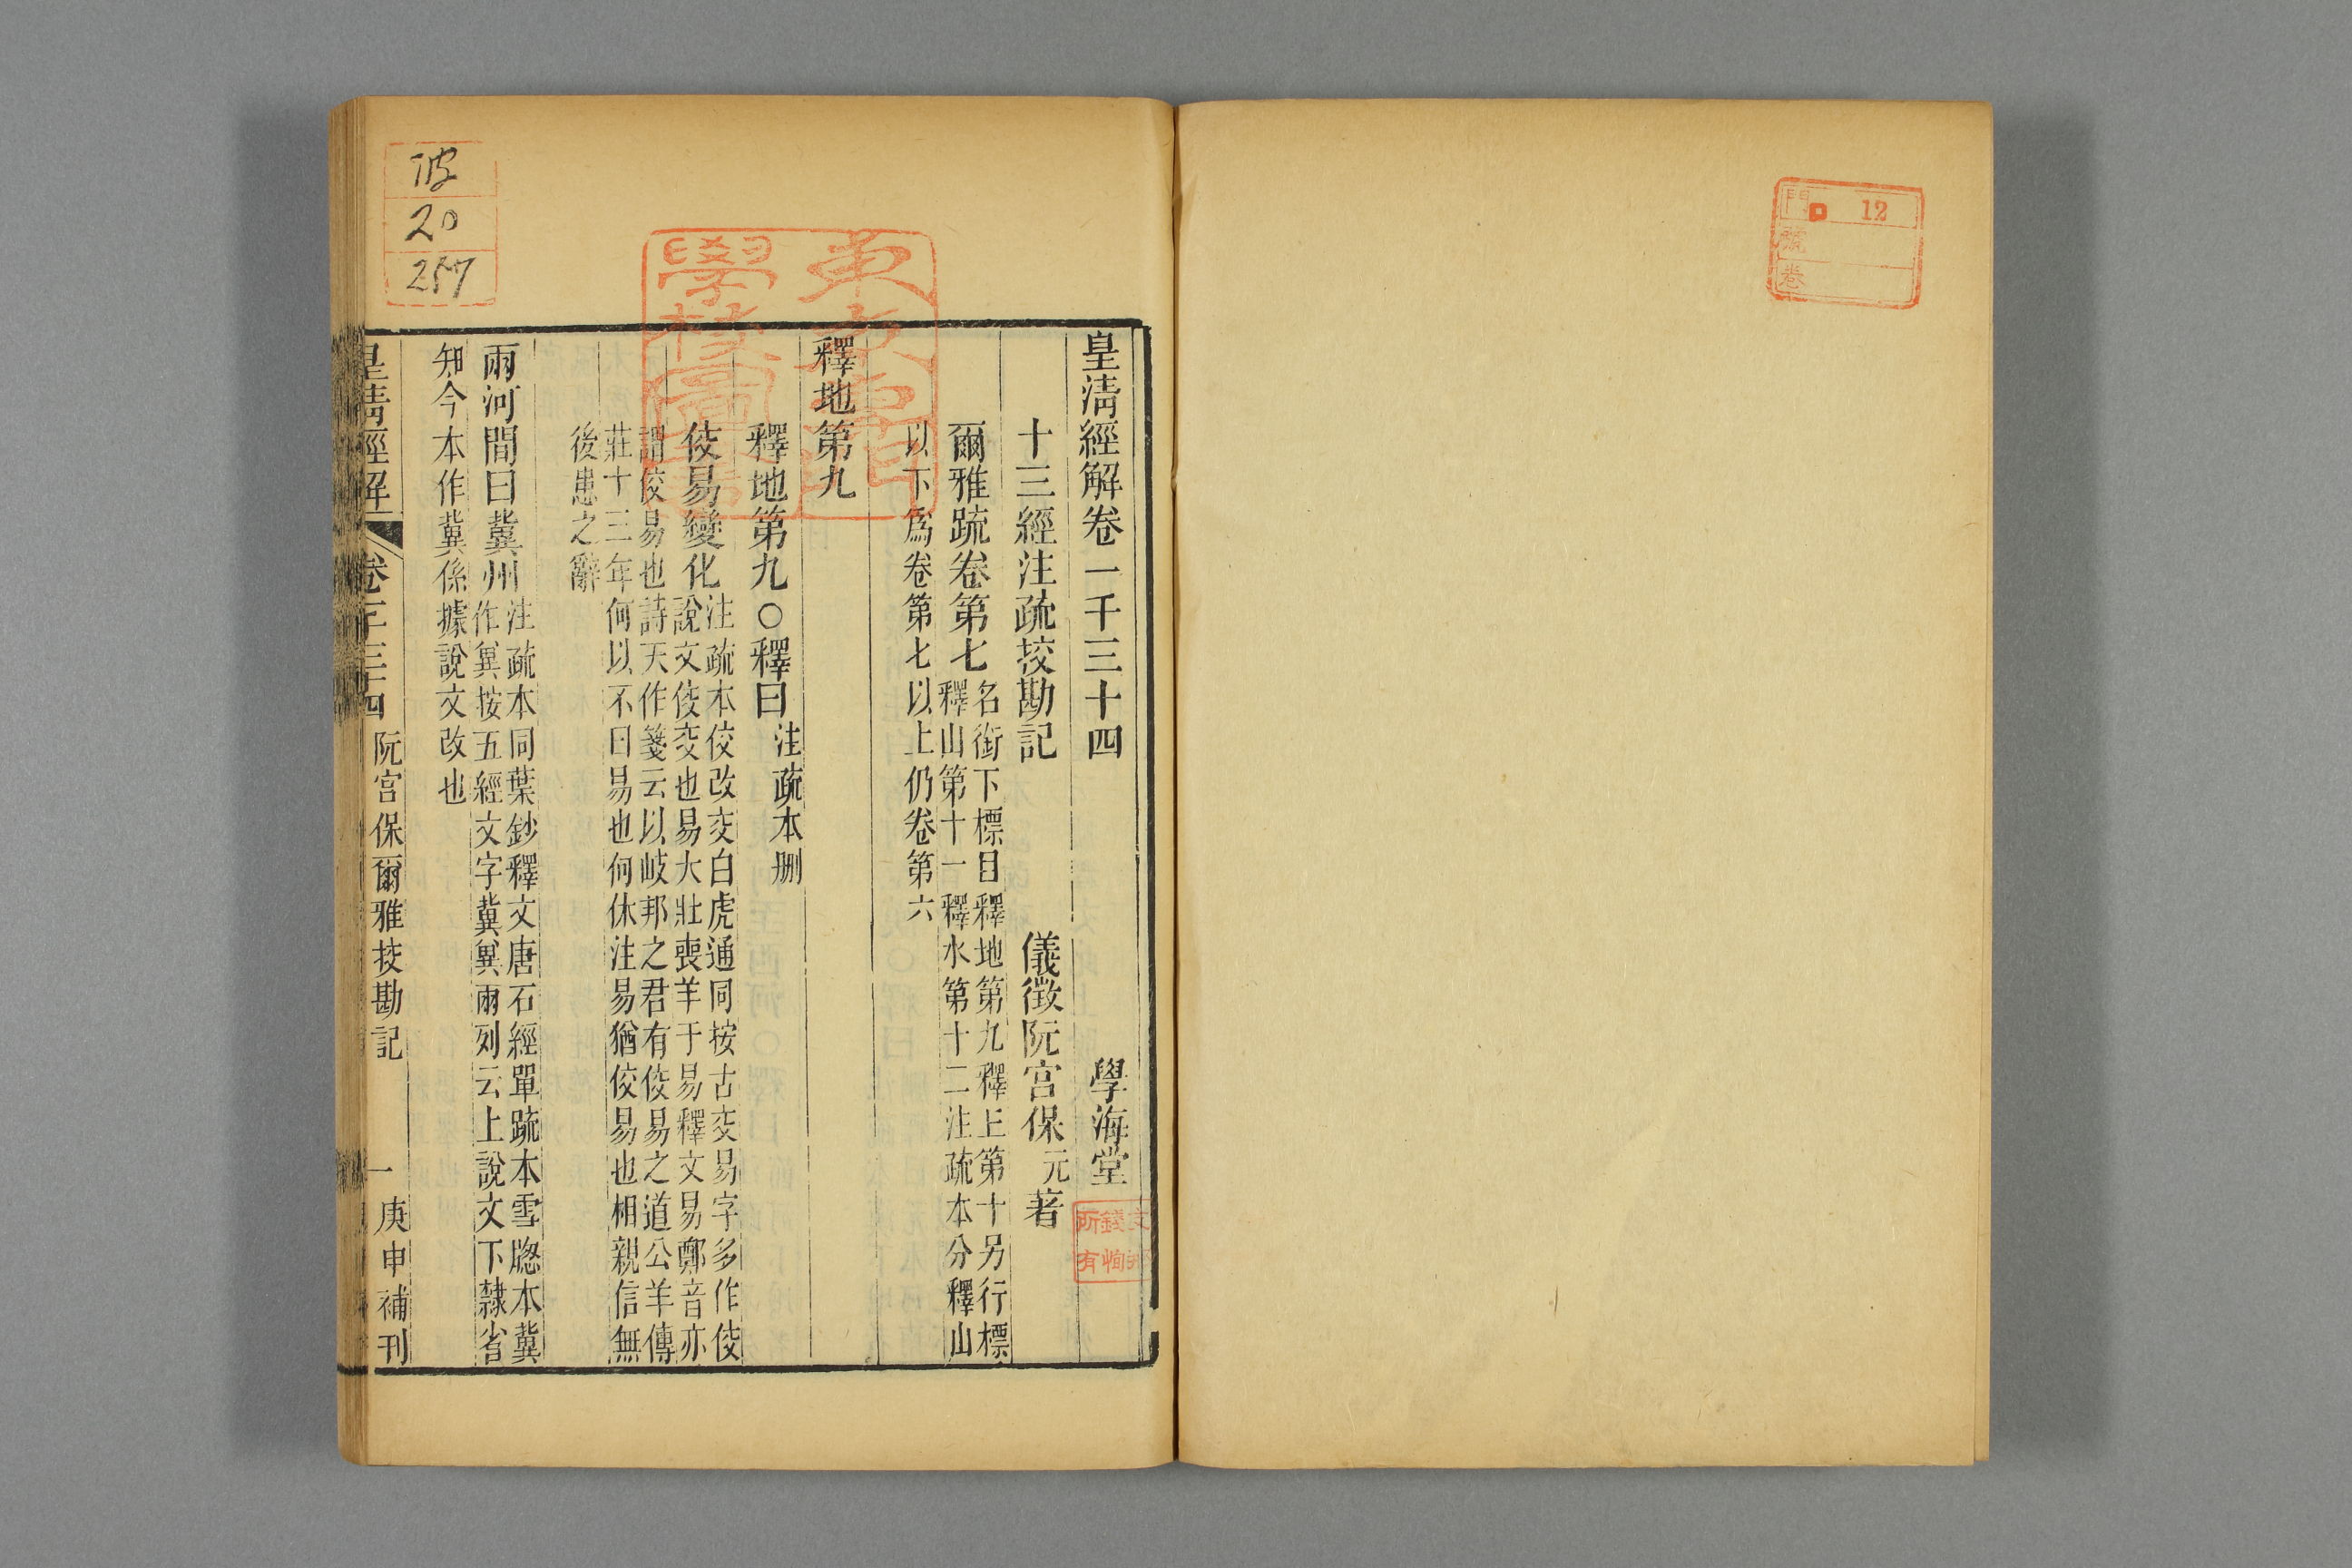 皇清經解卷一千三十四
學海堂
十三經注疏挍勘記
儀徵阮宫保元著
爾雅疏卷第七
名銜下標目釋地第九釋丘第十另行標
釋山第十一釋水第十二注疏本分釋山
以下爲卷第七以上仍卷第六
釋地第九
釋地第九○釋曰
注疏本刪
佼易變化
注疏本佼改交白虎通同按古交易字多作佼
說文佼交也易大壯喪羊于易釋文易鄭音亦
謂佼易也詩天作箋云以岐邦之君有佼易之道公羊傳
莊十三年何以不日易也何休注易猶佼易也相親信無
後患之辭
兩河間曰冀州
注疏本同葉鈔釋文唐石經單疏本雪牎本冀
作兾按五經文字冀兾兩列云上說文下隸省
知今本作冀係據說文改也
皇清經解
卷一千三十四
阮宫保爾雅挍勘記
一
庚申補刊
20
257
門
12
號
卷
所有